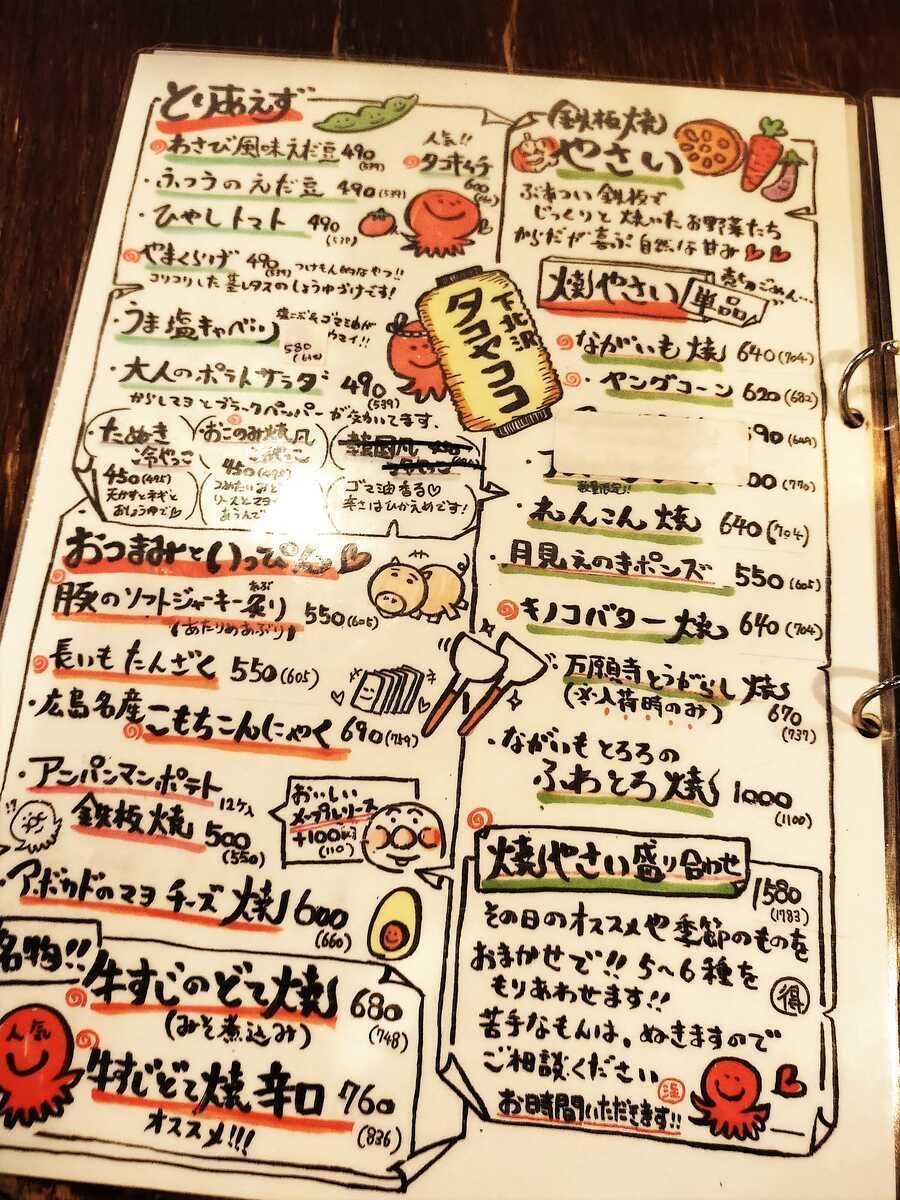 とりあえず
わさび風味えだ豆 490
(539)
人気!!
タコキムチ
600
・ふつうのえだ豆 490(539)
・ひやしトマト 490
(539)
やまくらげ 490
(539) つけもん的なやつ!!
コリコリした茎レタスのしょうゆづけです!
・うま塩キャベツ
580
ウマイ!!
・大人のポテトサラダ 490
(539)
からしマヨとブラックペッパーが効いてます。
・たぬき
冷やっこ
450(495)
天かすとネギと
おしょうゆで
・おこのみ焼風
冷やっこ
450(495)
ソースとマヨ
あうんで
ゴマ油香る♡
辛さはひかえめです!
下北沢
タコとココ
おつまみといっぴん
豚のソフトジャーキー炙り
あぶ
550(605)
(あたりめあぶり)
長いもたんざく 550(605)
・広島名産
こもちこんにゃく 690(759)
・アンパンマンポテト
12ケ入
鉄板焼 500
(550)
おいしい
メープルソース
+100
(110)
・アボカドのマヨチーズ焼 600
(660)
名物!!
牛すじのどて焼 680
(みそ煮込み)
(748)
人気
牛すじどて焼 辛口 760
(836)
オススメ!!!
鉄板焼
やさい
ぶあつい鉄板で
じっくりと焼いたお野菜たち
からだが喜ぶ自然な甘み
焼やさい 単品
ながいも焼 640(704)
・ヤングコーン 620(682)
90(649)
00(770)
数量限定!!
・れんこん焼 640(704)
・月見えのきポンズ 550(605)
キノコバター焼 640(704)
万願寺とうがらし焼
(※入荷時のみ)
670
(737)
・ながいもとろろの
ふわとろ焼 1000
(1100)
焼やさい盛り合わせ
1580
(1783)
その日のオススメや季節のものを
おまかせで!! 5〜6種を
もりあわせます!!
得
苦手なもんは。ぬきますので
ご相談ください
お時間いただきます!!